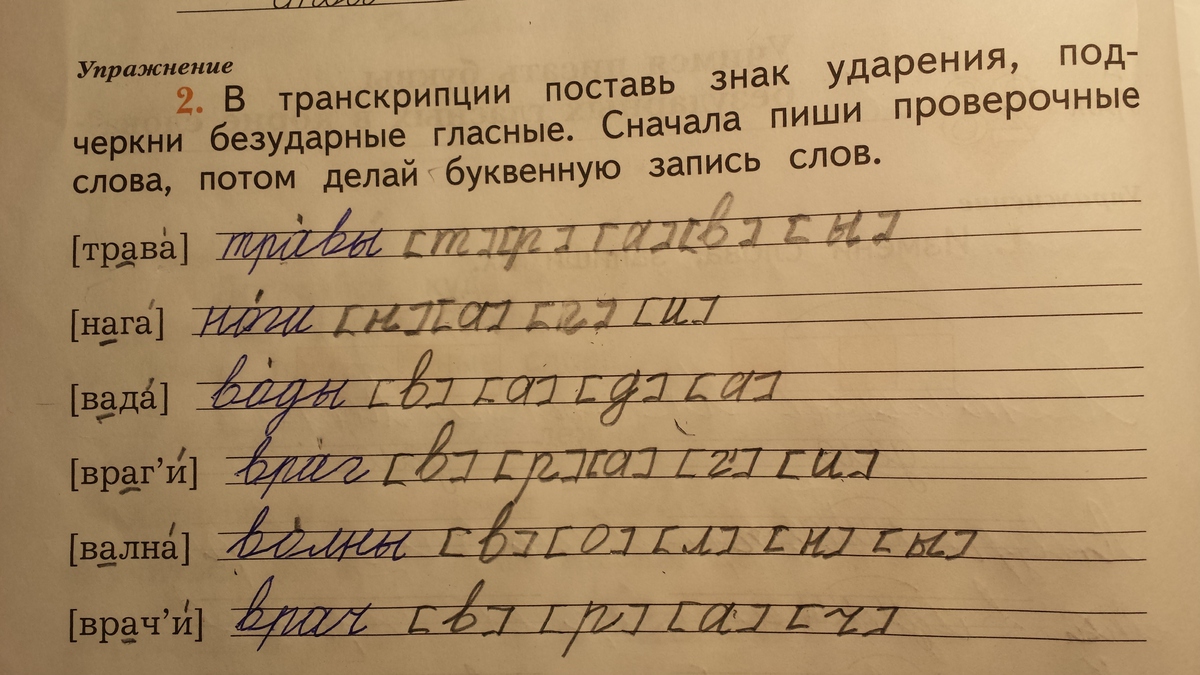 Упражнение
2. В транскрипции поставь знак ударения, под-
черкни безударные гласные. Сначала пиши проверочные
слова, потом делай буквенную запись слов.
[трава́] тра́вы [т] [р] [а] [в] [ы]
[нага́] но́ги [н] [а] [г] [и]
[вада́] во́ды [в] [а] [д] [а]
[враг’и́] враг [в] [р] [а] [г] [и]
[вална́] во́лны [в] [о] [л] [н] [ы]
[врач’и́] врач [в] [р] [а] [ч]